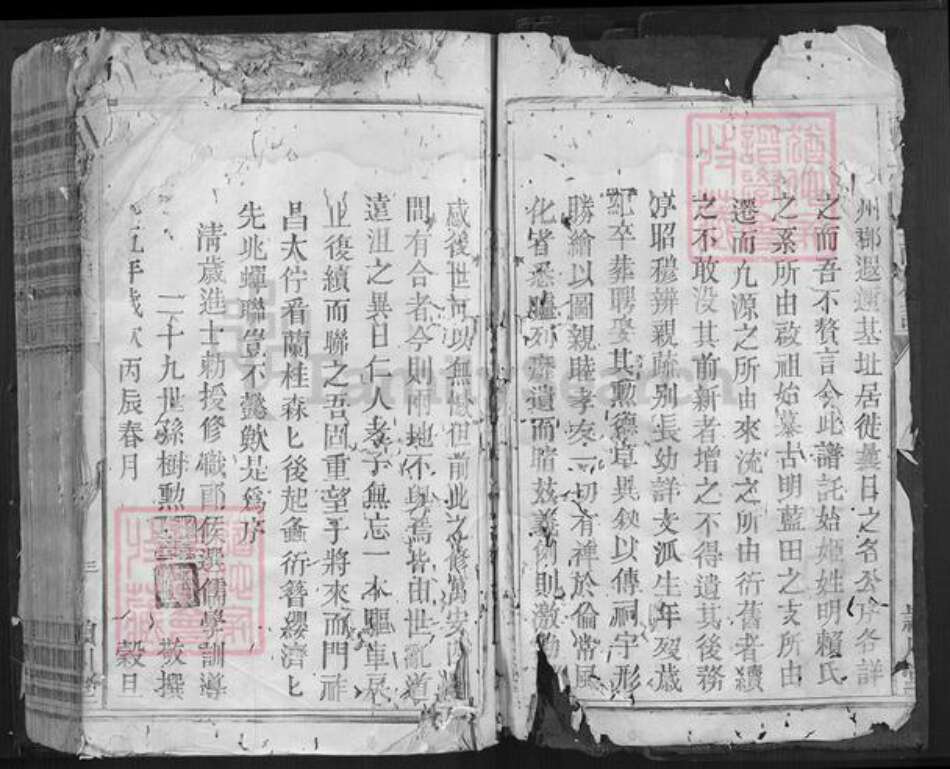 州郡遐運基址居徙曩日之名公序各詳
之而吾不贅言今此譜託始姬姓明賴氏
之系所由啟祖始墓古明藍田之支所由
遷而九源之所由來流之所由衍舊者續
之不敢沒其前新者增之不得遺其後務
俾昭穆辨親疏別長幼詳支派生年歿歲
紀卒葬聘娶其勳德卓異錄以傳祠宇形
勝繪以圖親睦孝友一切有裨於倫常風
化者悉臚列靡遺而睹茲義例則激勸
感後世可以無憾但前此之修萬安
間有合者今則兩地不與焉皆由世亂道
遠沮之異日仁人孝子無忘一本驅車
止復續而聯之吾固重望于將來而門祚
昌大佇看蘭桂森匕後起螽衍簪纓濟匕
先兆蟬聯豈不懿歟是爲序
清歲進士勅授修職郎侯選儒學訓導
二十九世孫樹勳 敬撰
五年歲次丙辰春月 穀旦
三